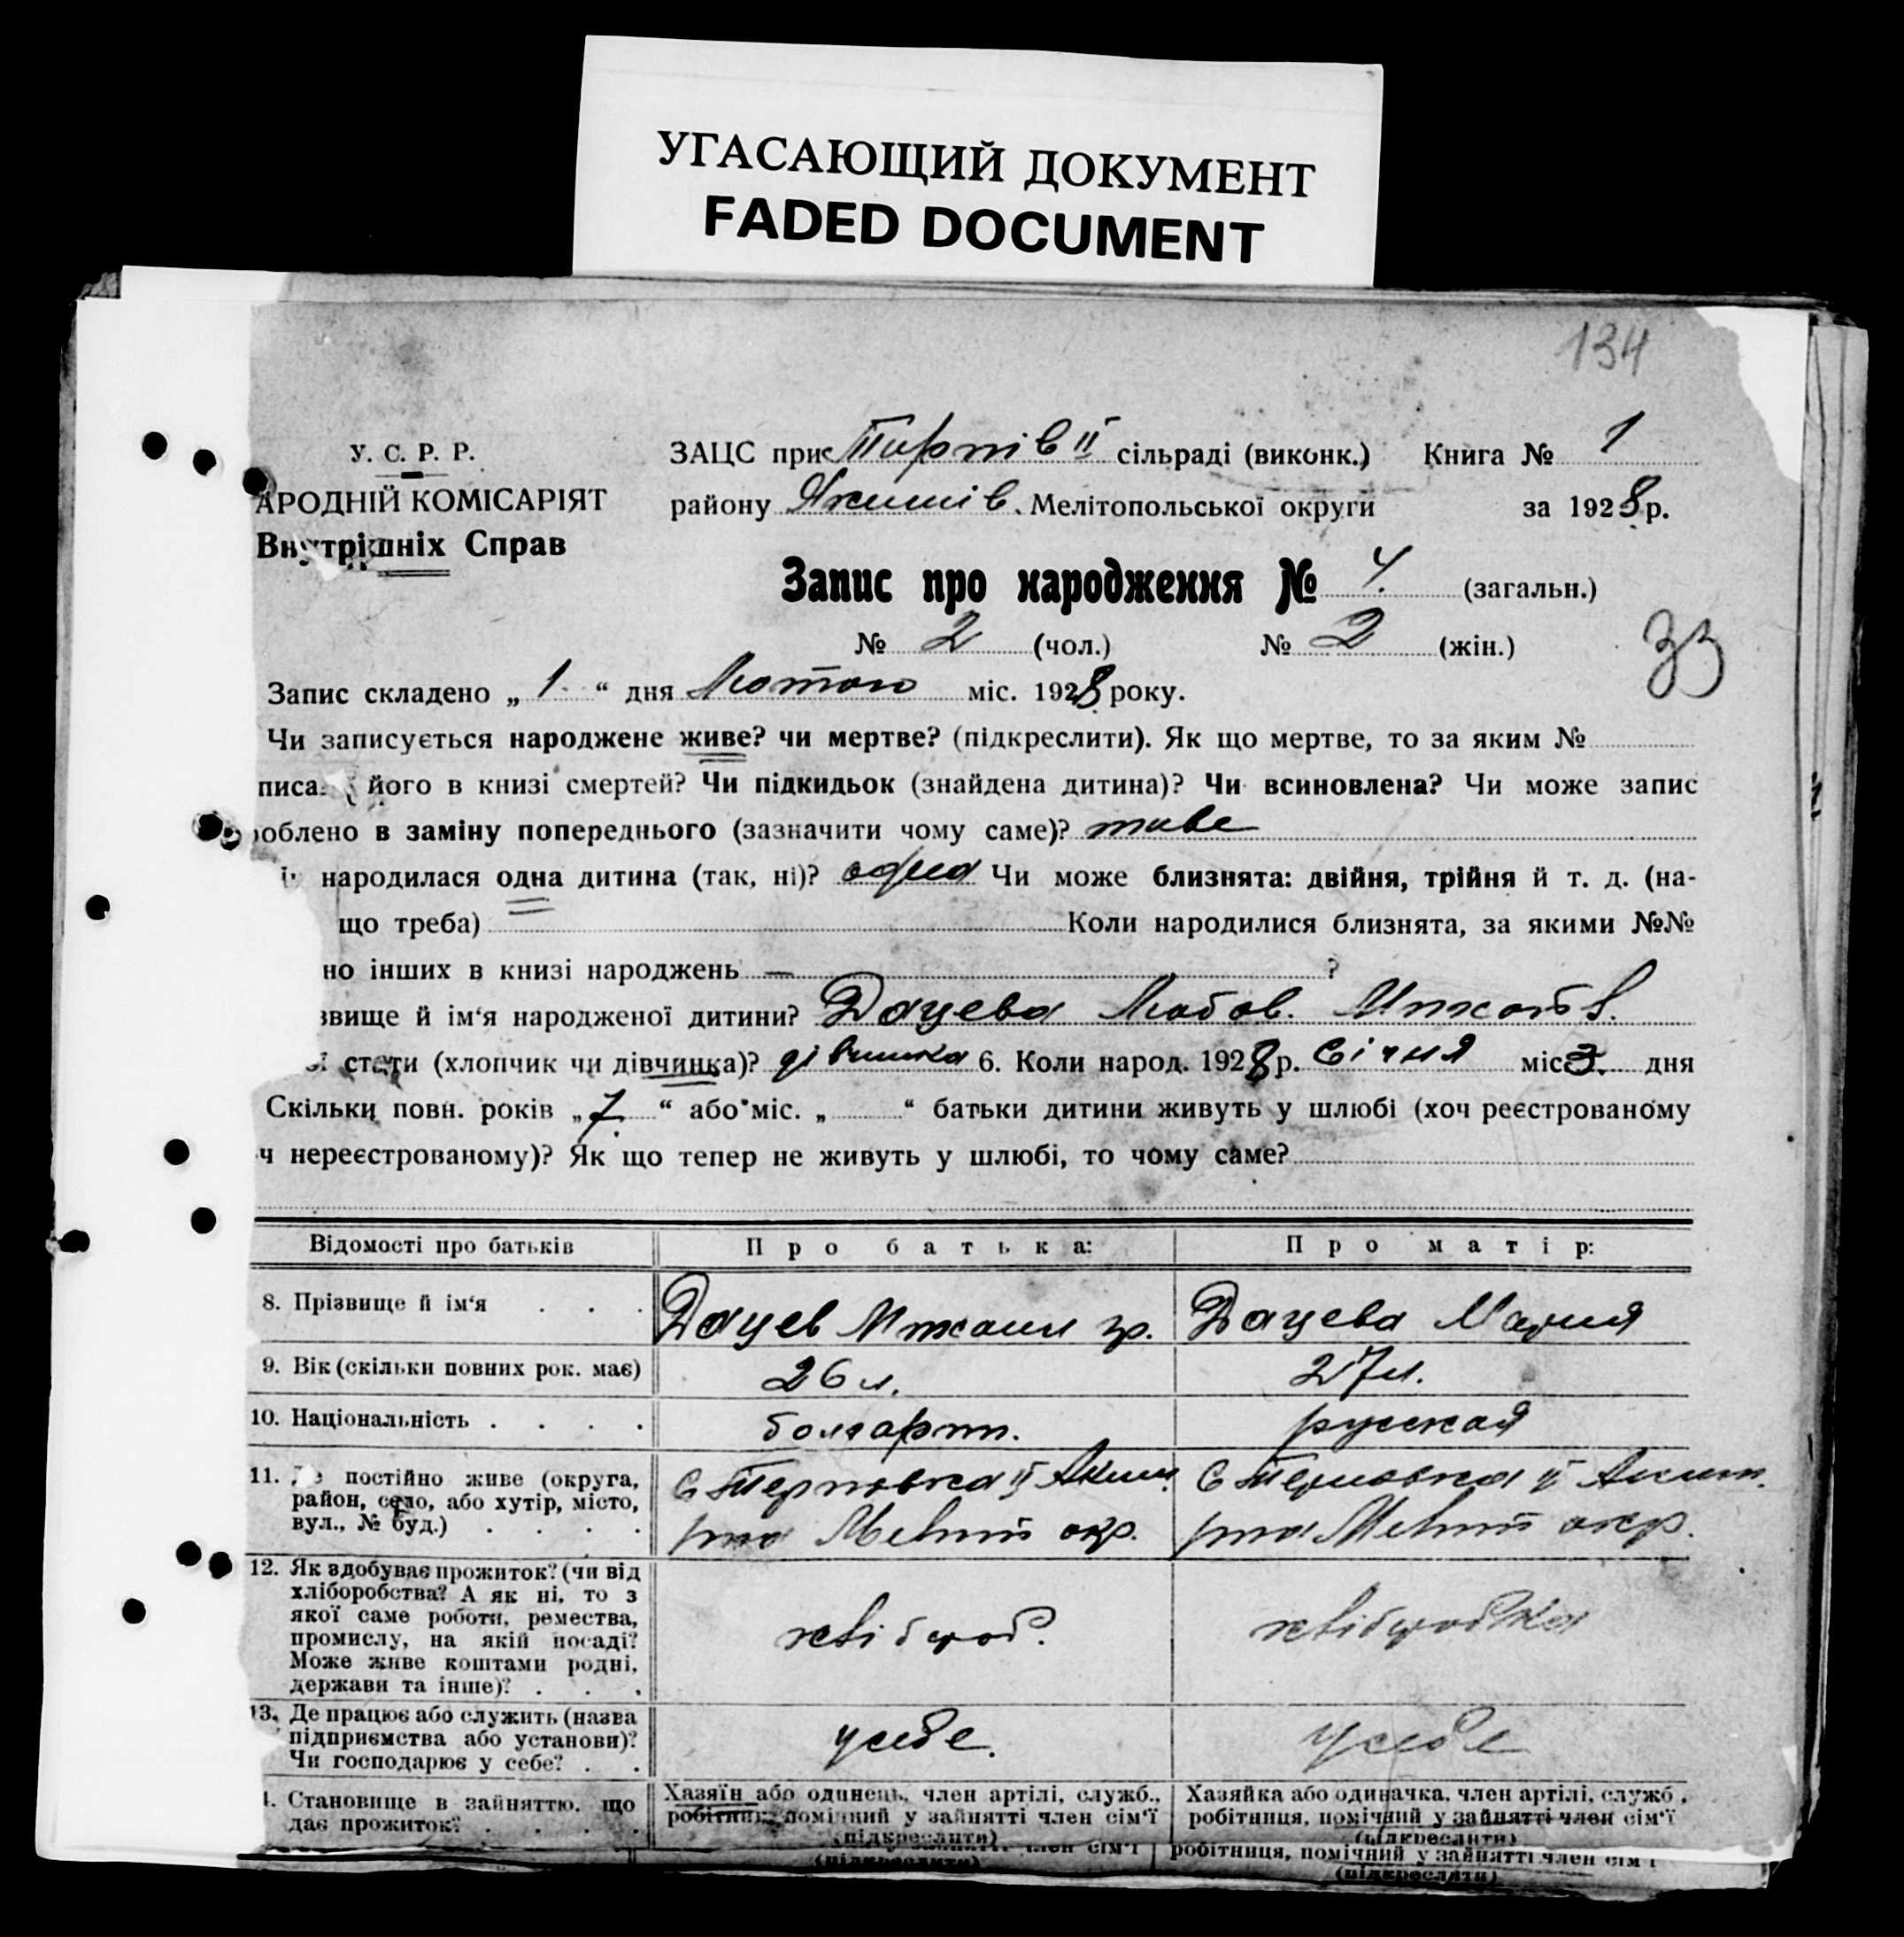 УГАСАЮЩИЙ ДОКУМЕНТ
FADED DOCUMENT
134
У. С. Р. Р.
АРОДНІЙ КОМІСАРІЯТ
Внутрішніх Справ
ЗАЦС при сільраді (виконк.) Книга № 1
району Якимів. Мелітопольської округи за 1928 р.
Запис про народження № 4 (загальн.)
№ 2 (чол.) № 2 (жін.)
33
Запис складено „ 1 “ дня Лютого міс. 1928 року.
Чи записується народжене живе? чи мертве? (підкреслити). Як що мертве, то за яким №
писа. його в книзі смертей? Чи підкидьок (знайдена дитина)? Чи всиновлена? Чи може запис
облено в заміну попереднього (зазначити чому саме)? живе
народилася одна дитина (так, ні)? одна Чи може близнята: двійня, трійня й т. д. (на-
що треба) Коли народилися близнята, за якими №№
но інших в книзі народжень — ?
звище й ім‘я народженої дитини? Дацева Любов.
стати (хлопчик чи дівчинка)? дівчинка 6. Коли народ. 1928 р. Січня міс. 3. дня
Скільки повн. років „ 7 “ або міс. „ “ батьки дитини живуть у шлюбі (хоч реєстрованому
ч нереєстрованому)? Як що тепер не живуть у шлюбі, то чому саме?
Відомості про батьків Про батька: Про матір:
8. Прізвище й ім‘я . . . Дацев Михаил гр. Дацева Мария
9. Вік (скільки повних рок. має) 26 л. 27 л.
10. Національність . . . . болгарин. русская
11. постійно живе (округа,
район, село, або хутір, місто,
вул., № буд.) . . . .
с Терновка II Аким.
рна Меліт окр.
с Терновка II Аким.
рна Меліт окр.
12. Як здобуває прожиток? (чи від
хліборобства? А як ні, то з
якої саме роботи, ремества,
промислу, на якій посаді?
Може живе коштами родні,
держави та інше)? . . .
хлібороб. хліборобка
13. Де працює або служить (назва
підприємства або установи)?
Чи господарює у себе? . .
у себе. у себе
4. Становище в зайняттю, що
дає прожиток? . . . .
Хазяїн або одинець, член артілі, служб.,
робітник, помічний у зайнятті член сім‘ї
(підкреслити)
Хазяйка або одиначка, член артілі, служб.,
робітниця, помічний у зайнятті член сім‘ї
(підкреслити)
член сім‘ї
(підкреслити)
робітниця, помічний у зайнятті член сім‘ї
(підкреслити)